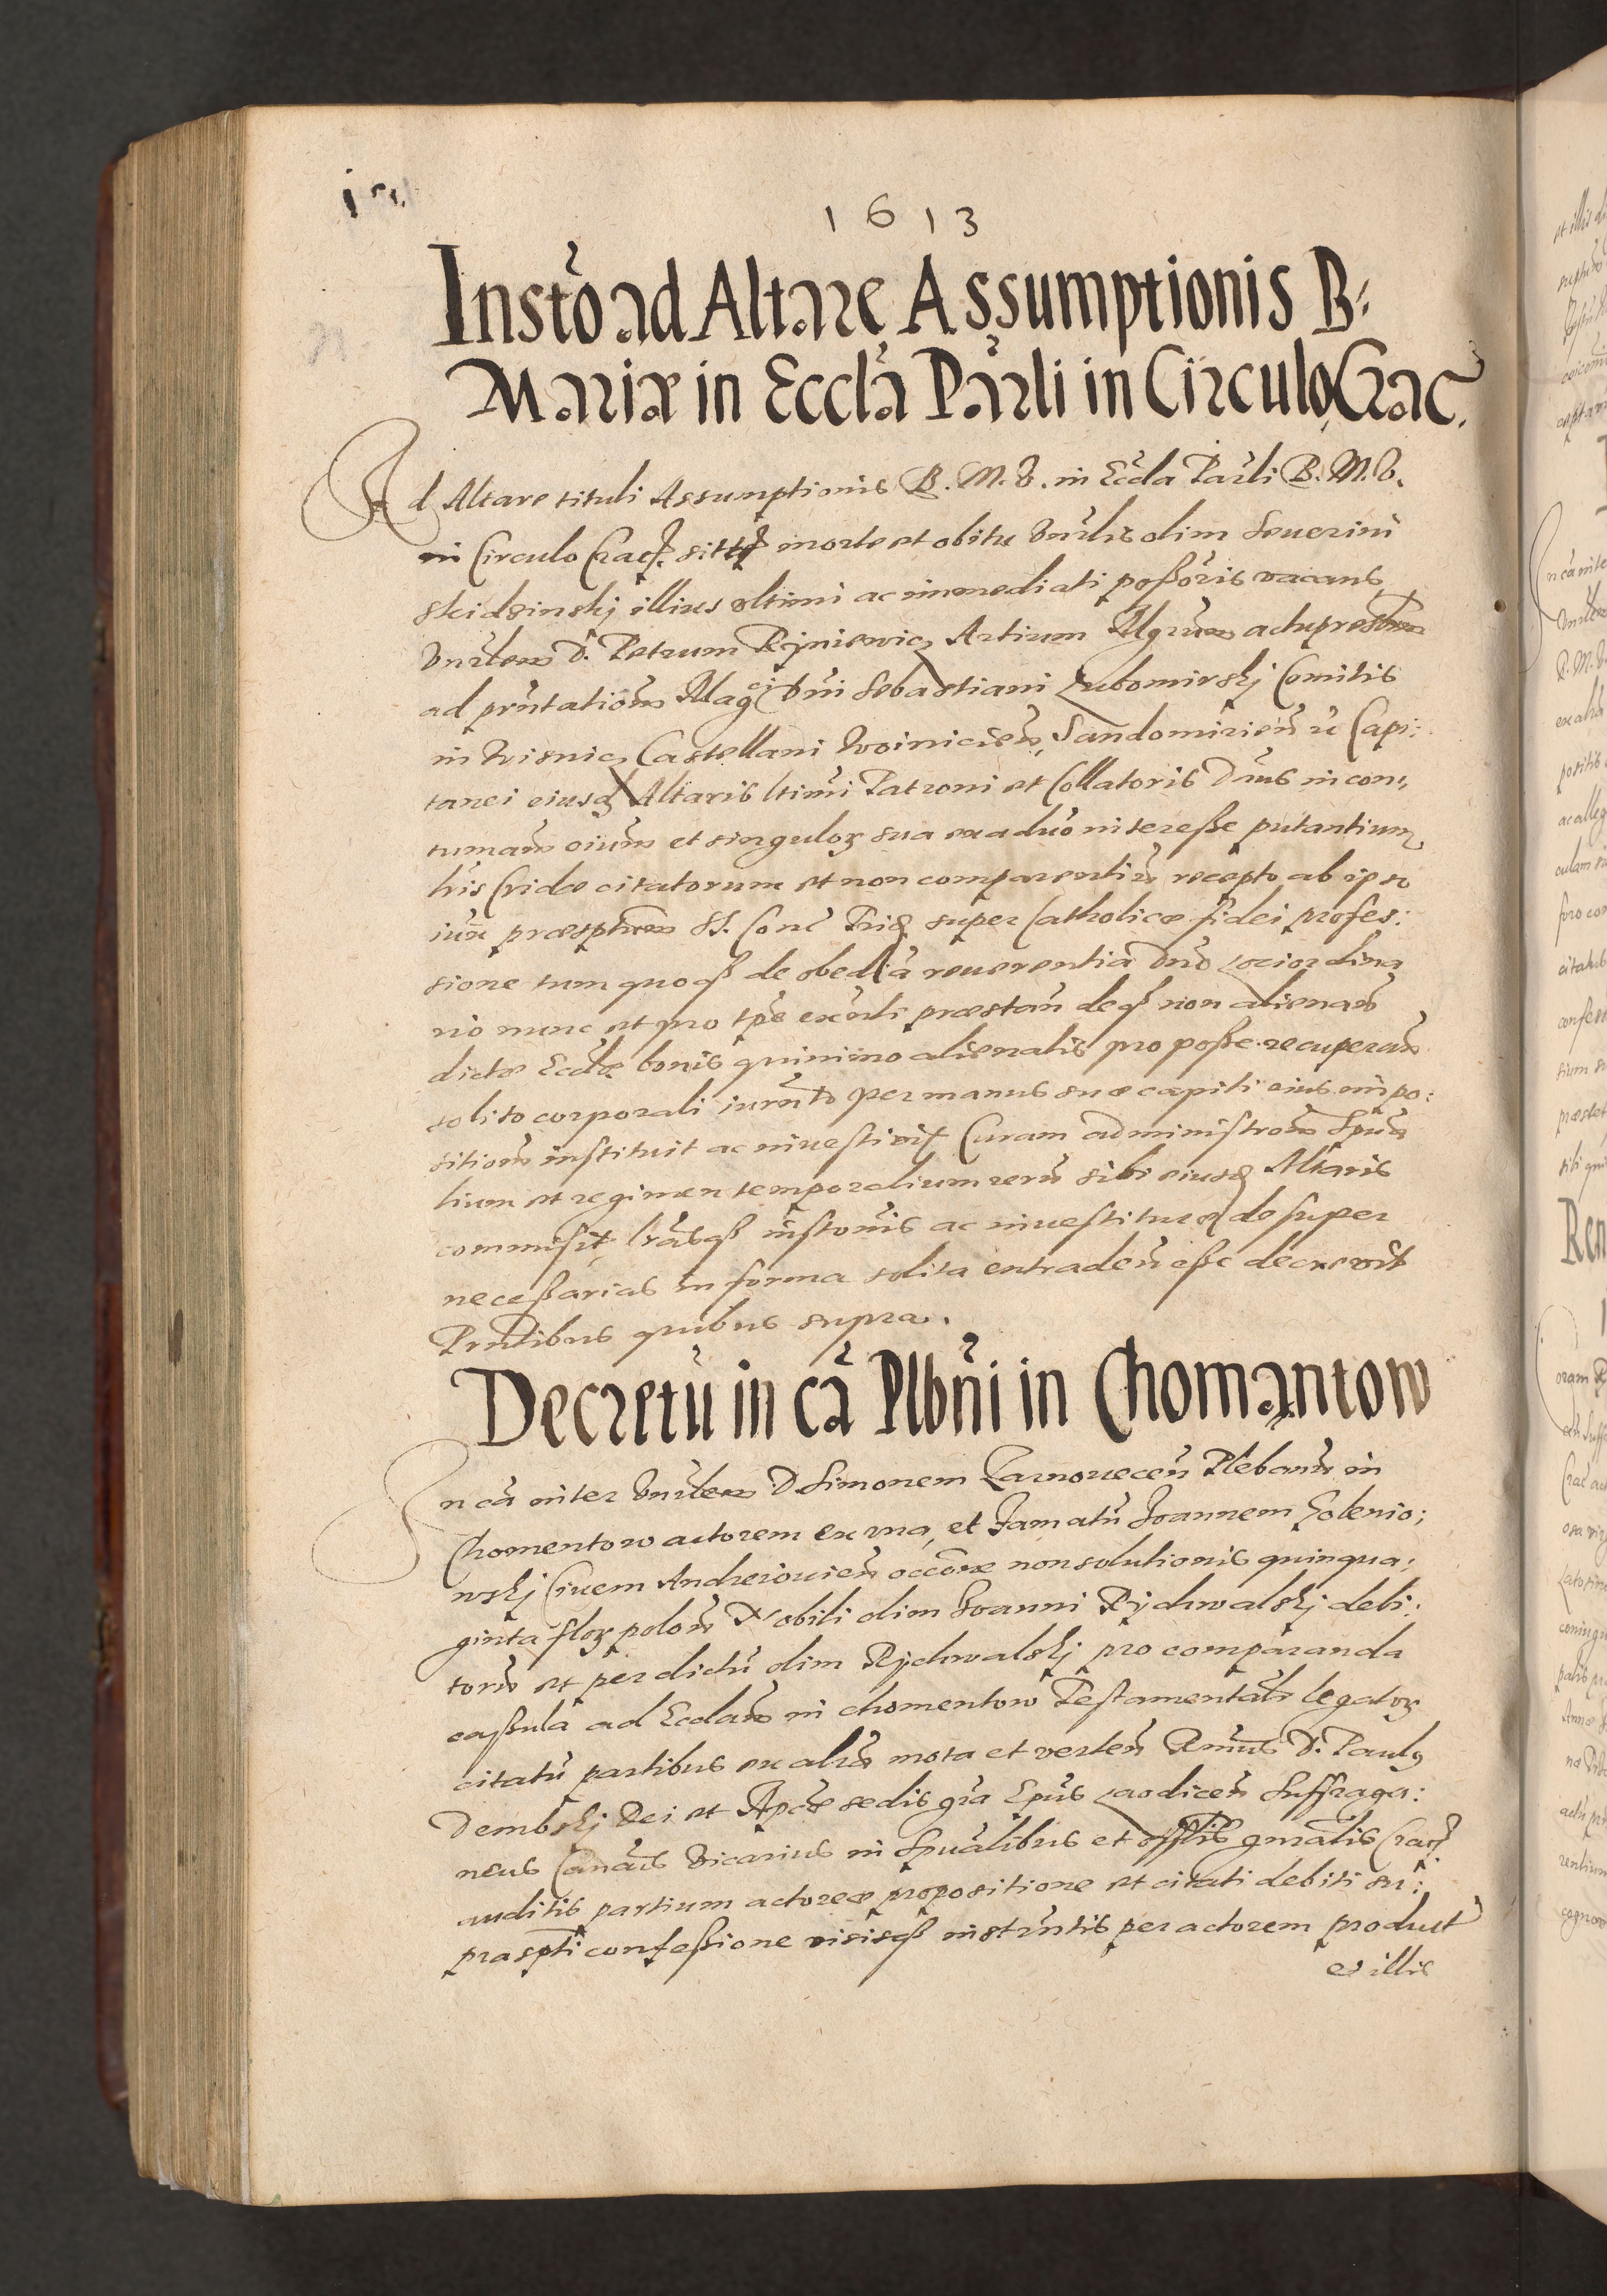 1613
Instõ ad Altare Assumptionis B:
Mariæ in Ecclã Pãrli in Circulo Crac.
Ad Altare tituli Assumptionis B. M. V. in Eccla Parli B. M. V.
in Circulo Crac. sit̃ morte et obitu Vnrlis olim Seuerini
Skidzinskj illius vltimi ac immediati poßoris vacans
Vnrlem D. Petrum Ryniewicz Artium Mgrum actu presbrm
ad prñtationẽ Magci Dni Sebastiani Lubomirskj Comitis
in Wisnicz Castellani Woiniciẽn, Sandomiriẽn zc Capi:
tanei eiusd Altaris ltimi Patroni et Collatoris Dñus in con,
tumam oium et singulor sua exaduo interesse putantium
his Cridæ citatorum et non comparentiũ recepto ab ipso
iux præsptum SS. Conc Trid super Catholicæ fidei profes:
sione tum quoq de obedia reuerentiã Dno Loci ordina
rio nunc et pro tpe exñti præstañ deq non alienañ
dictæ Eccliæ bonis quinimo alienatis pro posse recuperañ
solito corporali iurmto per manus suæ capiti eius impo:
sitionẽ instituit ac inuestiuit Curam administroem Spũa
lium et regimen temporalium rerũ sibi eiusd Altaris
commisit, lrasq instonis ac inuestituræ desuper
necessarias in forma solita extradeñ esse decreuit
Prñtibus quibus supra.
Decretũ in cã Plbñi in Chomantow
In cã inter Vnrlem D Simonem Zarnouecẽn Plebanũ in
Chomentow actorem ex vna, et Famatũ Joannem Golenio;
wskj Ciuem Andreiouiẽn occõne non solutionis quinqua,
ginta flor polon Nobili olim Joanni Rychwalskj debi:
torũ et per dictũ olim Rychwalskj pro comparanda
casula ad Ecclam in Chomentow Testamentalr legator
citatũ partibus ex altra mota et verteñ Rmus D. Paulg
Dembskj Dei et Apcæ sedis gra Epus Laodicen Suffraga:
neus Canãus Vicarius in Spualibus et offlis gnralis Crac
auditis partium actoreæ propositione et citati debiti su:
praspti confessione visisq instrũtis per actorem product
ex illis